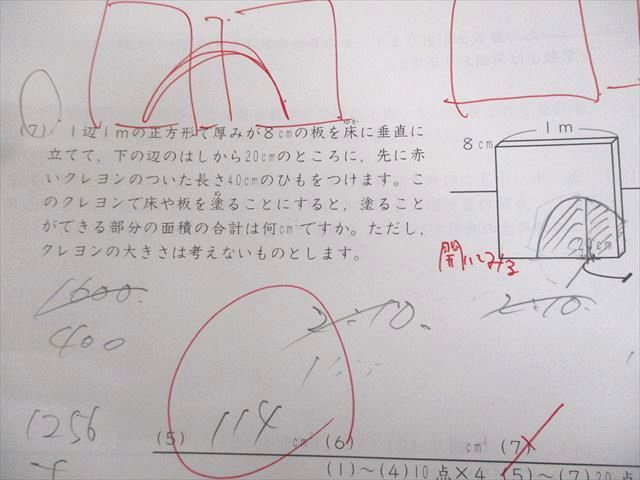 (7) 1辺1mの正方形で厚みが8cmの板を床に垂直に
立てて，下の辺のはしから20cmのところに，先に赤
いクレヨンのついた長さ40cmのひもをつけます。こ
のクレヨンで床や板を塗ることにすると，塗ること
ができる部分の面積の合計は何cm²ですか。ただし，
クレヨンの大きさは考えないものとします。
1m
8cm
20cm
開いてみる
1600.
400
2:10.
2:10.
1256
(5) 114 cm² (6) cm² (7)
(1)～(4)10点×4 (5)～(7)20点